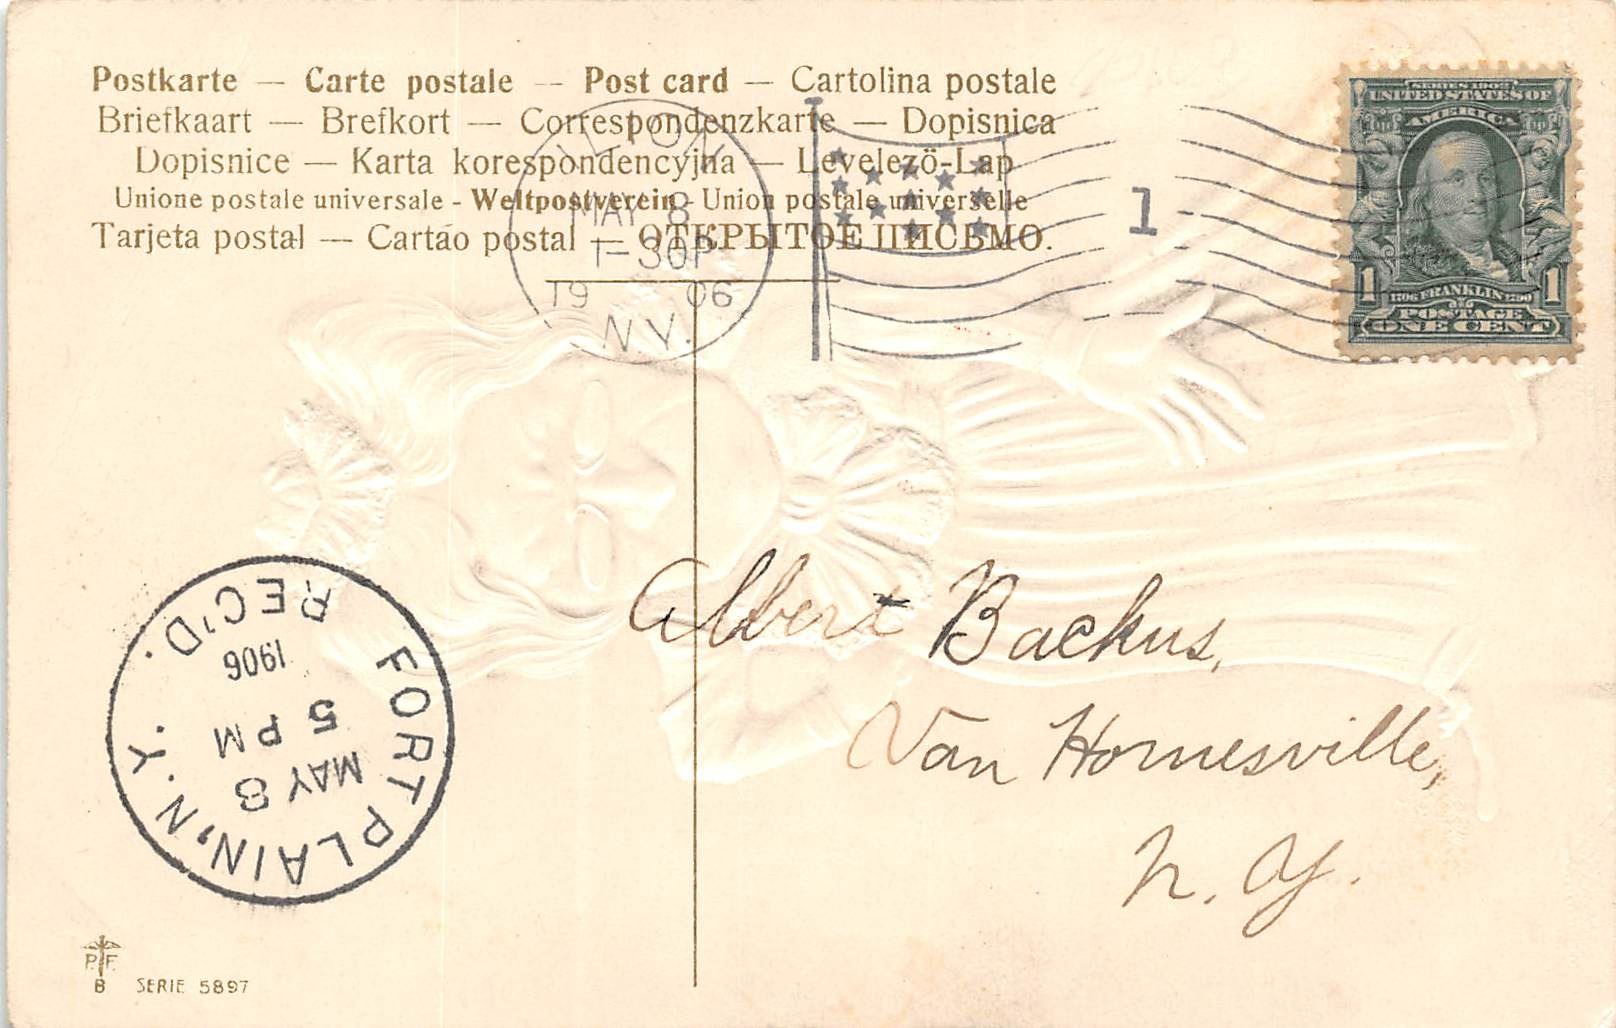 Postkarte — Carte postale -- Post card — Cartolina postale
Briefkaart — Brefkort — Correspondenzkarte — Dopisnica
Dopisnice — Karta korespondencyjna — Levelezö-Lap
Unione postale universale - Weltpostverein - Union postale universelle
Tarjeta postal — Cartão postal — ОТКРЫТОЕ ПИСЬМО.
ILION
MAY 8
1-30P
1906
N.Y.
1
SERIES 1902
UNITED STATES OF
AMERICA
1 1706 FRANKLIN 1790 1
POSTAGE
ONE CENT
Albert Backus,
Van Hornesville,
N. Y.
FORT PLAIN, N.Y.
MAY 8
5 PM
1906
REC'D.
P.F.
B SERIE 5897